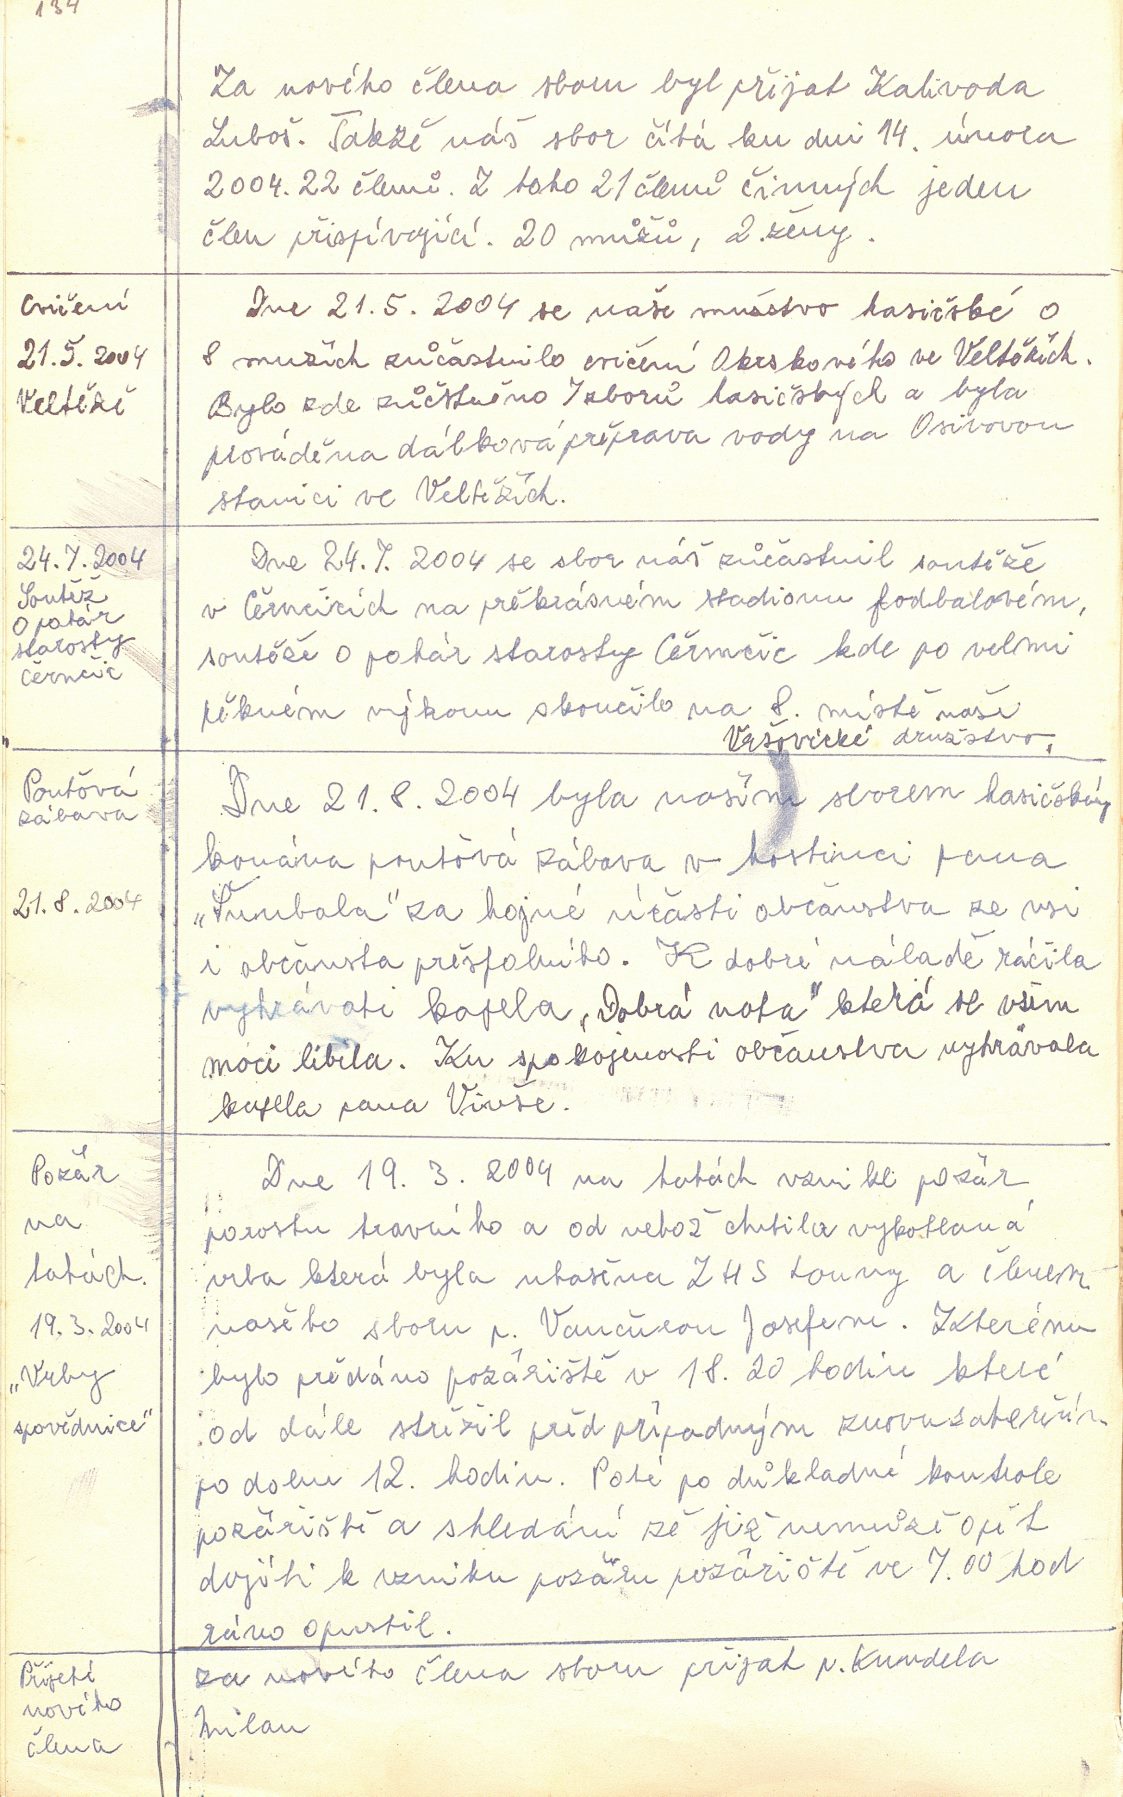 134
Za nového člena sboru byl přijat Kalivoda
Luboš. Takžě náš sbor čítá ku dni 14. února
2004. 22 členů. Z toho 21 členů činných jeden
člen přispívající. 20 mužů, 2 žěny.
Cvičení
21.5. 2004
Veltěžě
Dne 21.5. 2004 se našě mužstvo hasičské o
8 mužích zůčastnilo cvičení Okrskového ve Veltěžích.
Bylo zde zůčstněno 7 sborů hasičských a byla
prováděna dálková přěprava vody na Osivovou
stanici ve Veltěžích.
24.7.2004
Soutěž
O pohár
starosty
Černčic
Dne 24.7. 2004 se sbor náš zůčastnil soutěžě
v Černčicích na přěkrásném stadionu fodbalovém,
soutěžě o pohár starosty Černčic kde po velmi
pěkném výkonu skončilo na 8. místě našě
Vršovické družstvo.
Pouťová
zábava
21.8.2004
Dne 21.8. 2004 byla našim sborem hasičským
konána pouťová zábava v hostinci pana
„Šumbala" za hojné účasti občanstva ze vsi
i občansta přěspolního. K dobré náladě ráčila
vyhrávati kapela „Dobrá nota" která se všem
moci líbila. Ku spokojenosti občanstva vyhrávala
kapela pana Vinše.
Požár
na
lukách.
19.3.2004
„Vrby
spovědnice"
Dne 19. 3. 2004 na lukách vznikl požár
porostu travního a od nehož chytila vykotlaná
vrba která byla uhašěna ZHS Louny a členem
našěho sboru p. Vančurou Josefem. Kterému
bylo přědáno požářiště v 18.20 hodin které
od dále střěžil přěd případným
po dobu 12. hodin. Poté po důkladné kontrole
požářiště a shledání žě již nemůžě opět
dojíti k vzniku požáru požářiště ve 7.00 hod
ráno opustil.
Přijetí
nového
člena
za nového člena sboru přijat p. Kundela
Milan